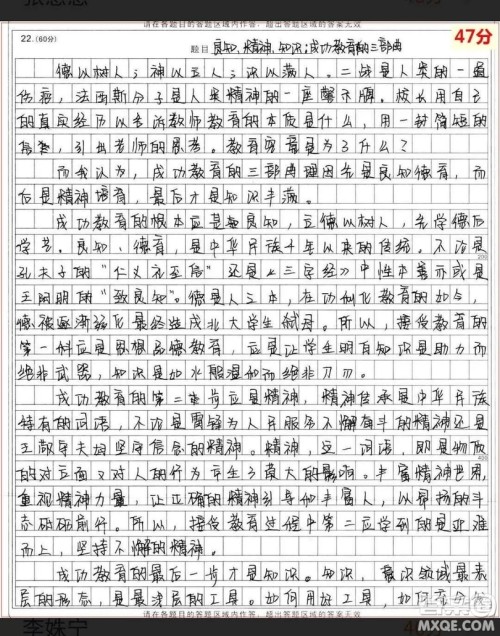 请在各题目的答题区域内作答,超出答题区域的答案无效
22.(60分)
47分
题目 良知、精神、知识;成功教育的三部曲
德以树人;神以立人;识以满人。二战是人类的一道
伤疤,法西斯分子是人类精神的一座警示牌。校长用自己
的真实经历以告诉教师教育的本质是什么,用一封简短的
信笺,引出老师的思考。教育究竟是为了什么?
而我认为,成功教育的三部曲理因先是良知德育,而
后是精神培育,最后才是知识丰满。
成功教育的根本应是良知,立德以树人,先学德后
学艺。良知、德育,是中华民族千年以来的传统。不论是
孔夫子的“仁义礼至信”还是《三字经》中性本善亦或是
王阳明的“致良知”。德是人之本,在功利化教育的如今,
德被逐渐弱化最终造成北大学生弑母。所以,接受教育的
第一件应是思想品德教育,应是让学生明白知识是助力而
绝非武器,知识是如水般温和而绝非刀刃。
成功教育的第二步应是精神,精神传承是中华民族
特有的词语,不论是雷锋为人民服务不懈奋斗的精神还是
王继才夫妇坚守信念的精神。精神,这一词语,即是物质
的对立面又对人的行为产生了莫大的影响。丰富精神世界,
重视精神力量,让正确的精神引导和丰富人,以昂扬的斗
志砥砺前行。所以,接受教育过程中第二应学到的是迎难
而上,坚持不懈的精神。
成功教育的最后一步才是知识。知识,意识领域最表
层的形态,是最浅层的工具。如何用好工具,如何
200
400
请在各题目的答题区域内作答,超出答题区域的答案无效
MXQE.COM
李姝宁